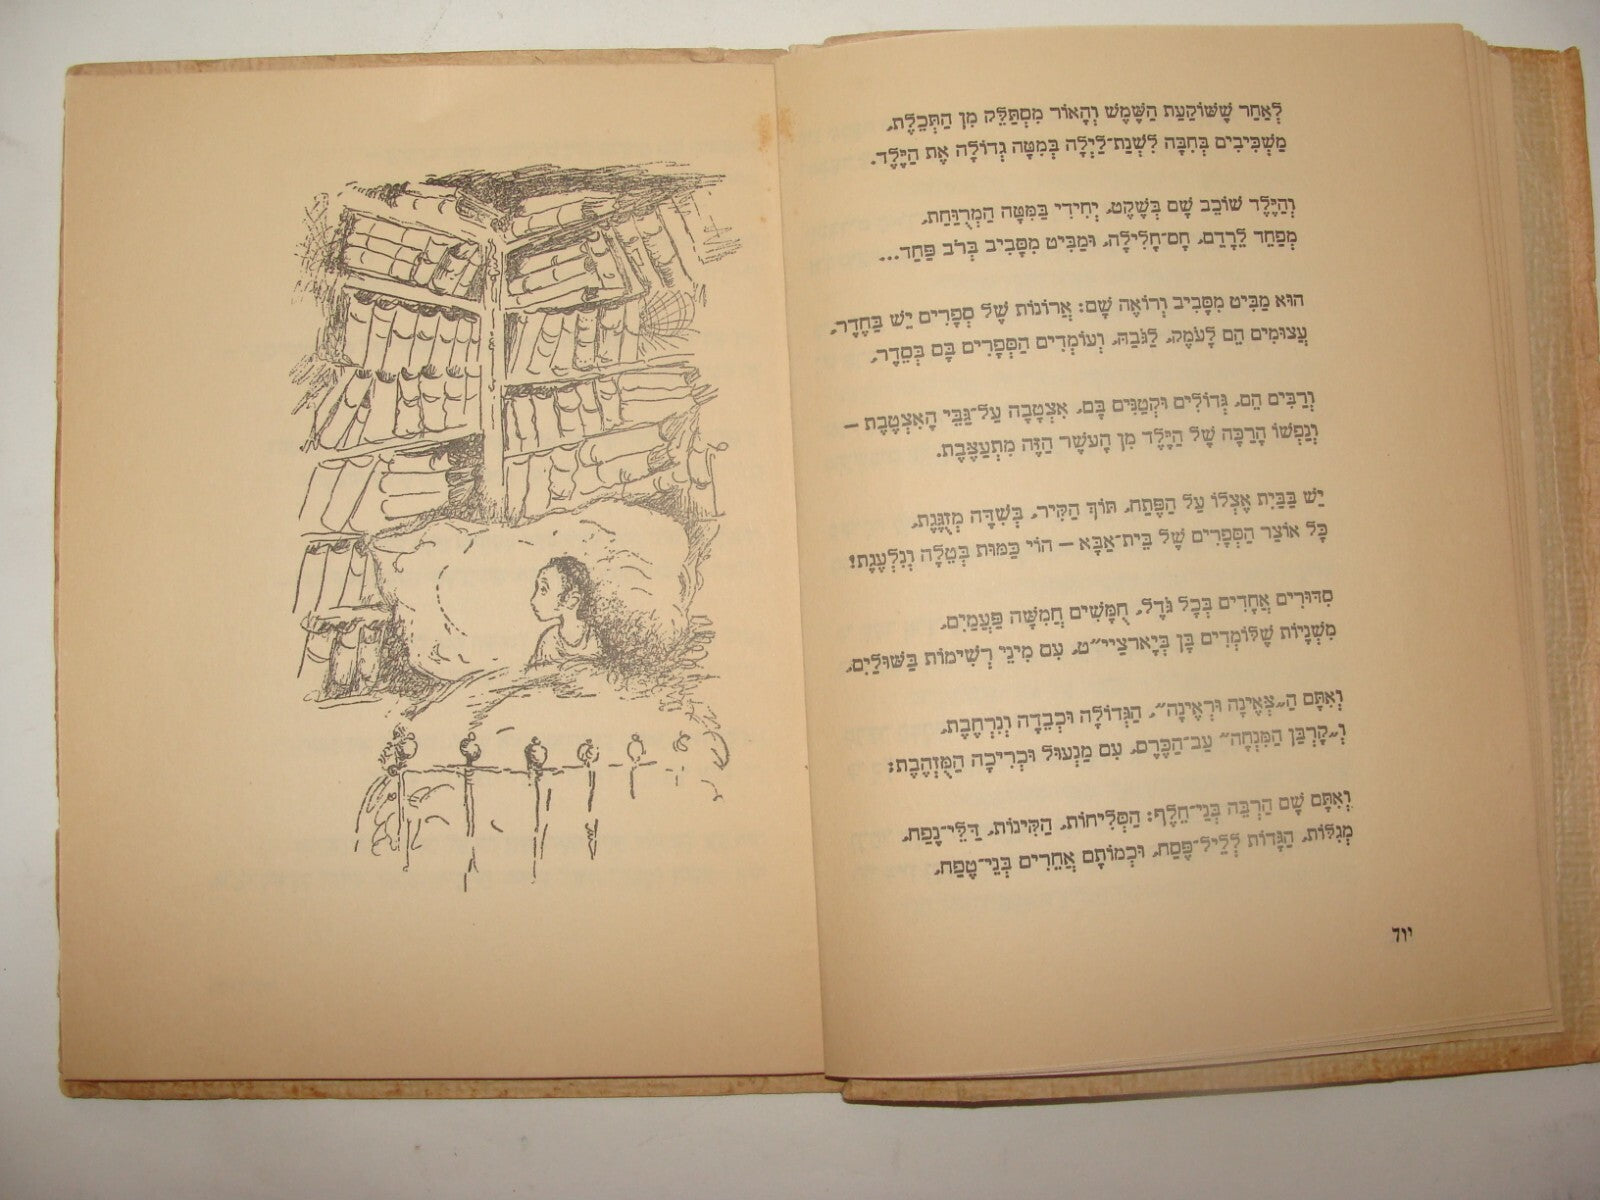 לְאַחַר שֶׁשּׁוֹקַעַת הַשֶּׁמֶשׁ וְהָאוֹר מִסְתַּלֵּק מִן הַתְּכֵלֶת,
מַשְׁכִּיבִים בְּחִבָּה לִשְׁנַת־לַיְלָה בְּמִטָּה גְדוֹלָה אֶת הַיֶּלֶד.
וְהַיֶּלֶד שׁוֹכֵב שָׁם בְּשֶׁקֶט, יְחִידִי בַּמִּטָּה הַמְרֻוַּחַת,
מְפַחֵד לֵרָדֵם, חָס־חָלִילָה, וּמַבִּיט מִסָּבִיב בְּרֹב פַּחַד...
הוּא מַבִּיט מִסָּבִיב וְרוֹאֶה שָׁם: אֲרוֹנוֹת שֶׁל סְפָרִים יֵשׁ בַּחֶדֶר,
עֲצוּמִים הֵם לָעֹמֶק, לַגֹּבַהּ, וְעוֹמְדִים הַסְּפָרִים בָּם בְּסֵדֶר,
וְרַבִּים הֵם, גְּדוֹלִים וּקְטַנִּים בָּם, אִצְטָבָה עַל־גַּבֵּי הָאִצְטֶבֶת –
וְנַפְשׁוֹ הָרַכָּה שֶׁל הַיֶּלֶד מִן הָעֹשֶׁר הַזֶּה מִתְעַצֶּבֶת.
יֵשׁ בַּבַּיִת אֶצְלוֹ עַל הַפֶּתַח, תּוֹךְ הַקִּיר, בְּשִׁדָּה מְזֻגֶּגֶת,
כָּל אוֹצַר הַסְּפָרִים שֶׁל בֵּית־אַבָּא – הוֹי כַּמּוּת בְּטֵלָה וְנִלְעֶגֶת!
סִדּוּרִים אֲחָדִים בְּכָל גֹּדֶל, חֻמָּשִׁים חֲמִשָּׁה פַּעֲמַיִם,
מִשְׁנָיוֹת שֶׁלּוֹמְדִים בָּן בְּיָארְצַיי״ט, עִם מִינֵי רְשִׁימוֹת בַּשּׁוּלַיִם,
וְאִתָּם הַ„צְּאֶינָה וּרְאֶינָה״, הַגְּדוֹלָה וּכְבֵדָה וְנִרְחֶבֶת,
וְ„קָרְבַּן הַמִּנְחָה״ עַב־הַכֶּרֶס, עִם מַנְעוּל וּכְרִיכָה הַמֻּזְהֶבֶת:
וְאִתָּם שָׁם הַרְבֵּה בְּנֵי־חֵלֶף: הַסְּלִיחוֹת, הַקִּינוֹת, דַּלֵּי־נֶפַח,
מְגִלּוֹת, הַגָּדוֹת לְלֵיל־פֶּסַח, וּכְמוֹתָם אֲחֵרִים בְּנֵי־טֶפַח,
יוד